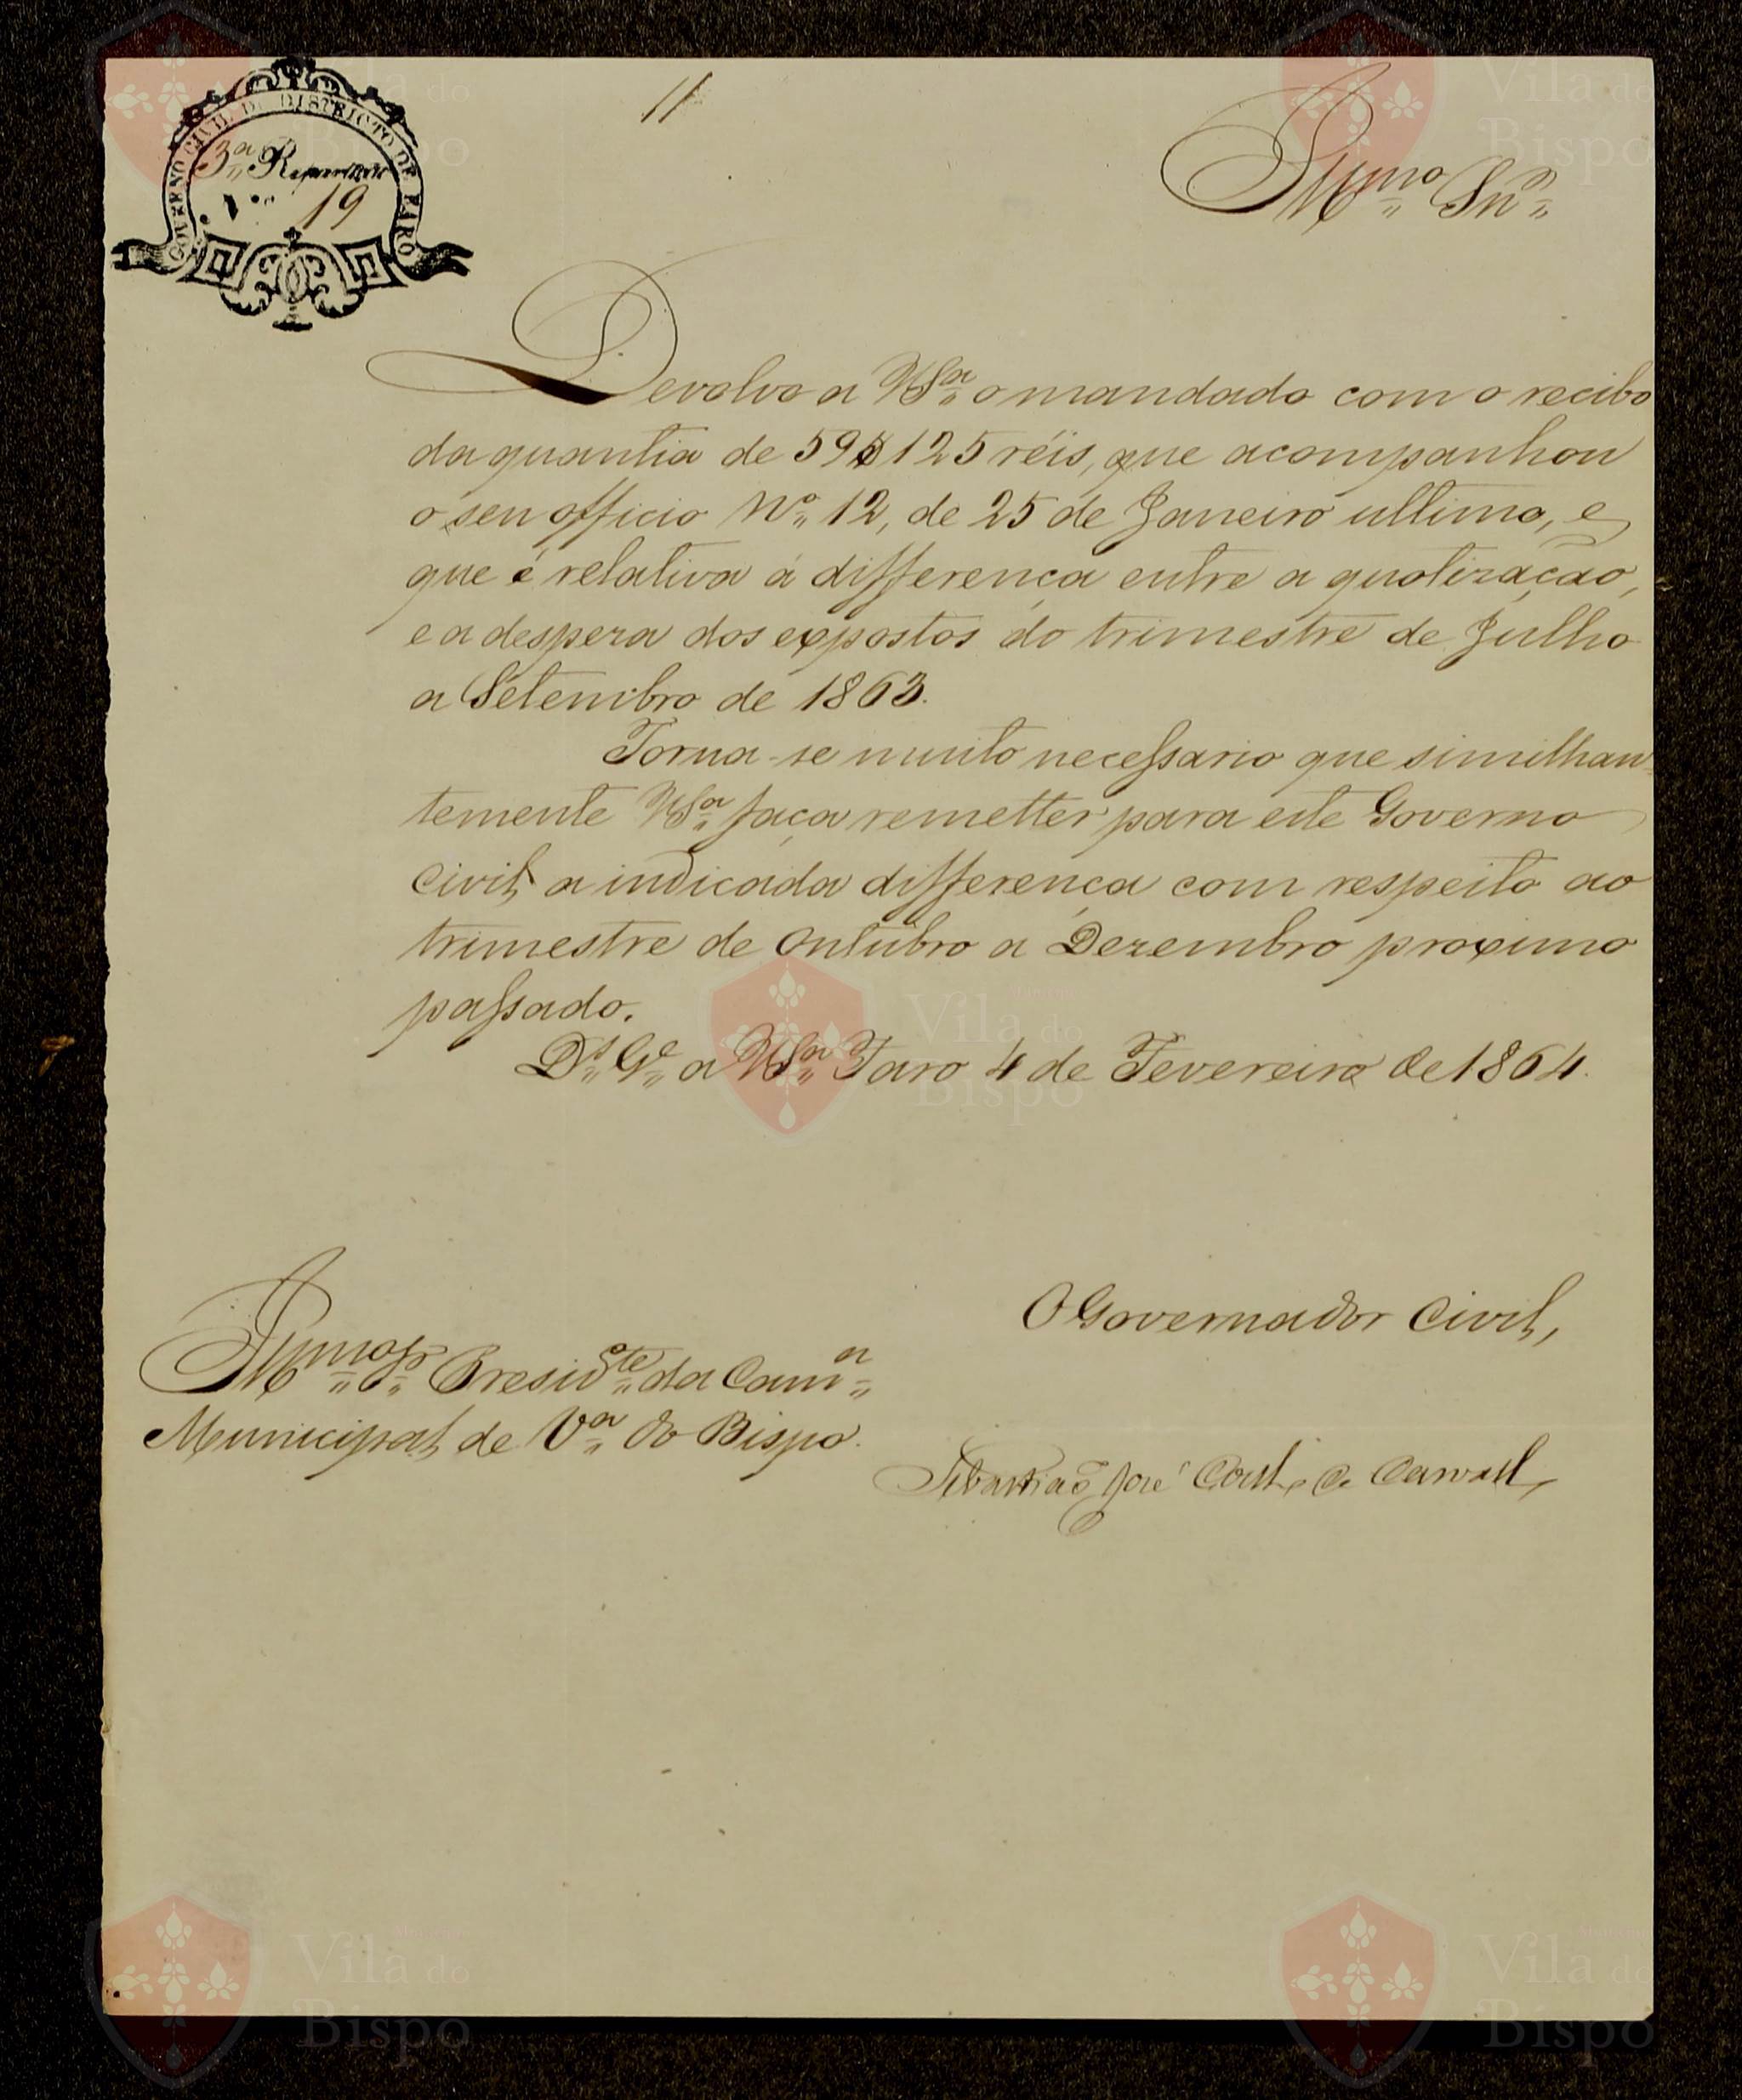 11
GOVERNO CIVIL DO DISTRICTO DE FARO
3.ª Repartição
N.º 19
Illmo Snr
Devolvo a V Sª o mandado com o recibo
da quantia de 59$125 réis, que acompanhou
o seu officio Nº 12, de 25 de Janeiro ultimo, e
que é relativa á differença entre a quotização,
e a despeza dos expostos do trimestre de Julho
a Setembro de 1863.
Torna-se muito necessario que similhan-
temente V Sª faça remetter para este Governo
Civil, a indicada differença com respeito ao
trimestre de Outubro a Dezembro proximo
passado.
Ds Ge a V Sª Faro 4 de Fevereiro de 1864.
O Governador Civil,
Illmo Sr Presidte da Camª
Municipal, de Vª do Bispo.
Sebastião José Coelho de Carvalho
Município
Vila do
Bispo